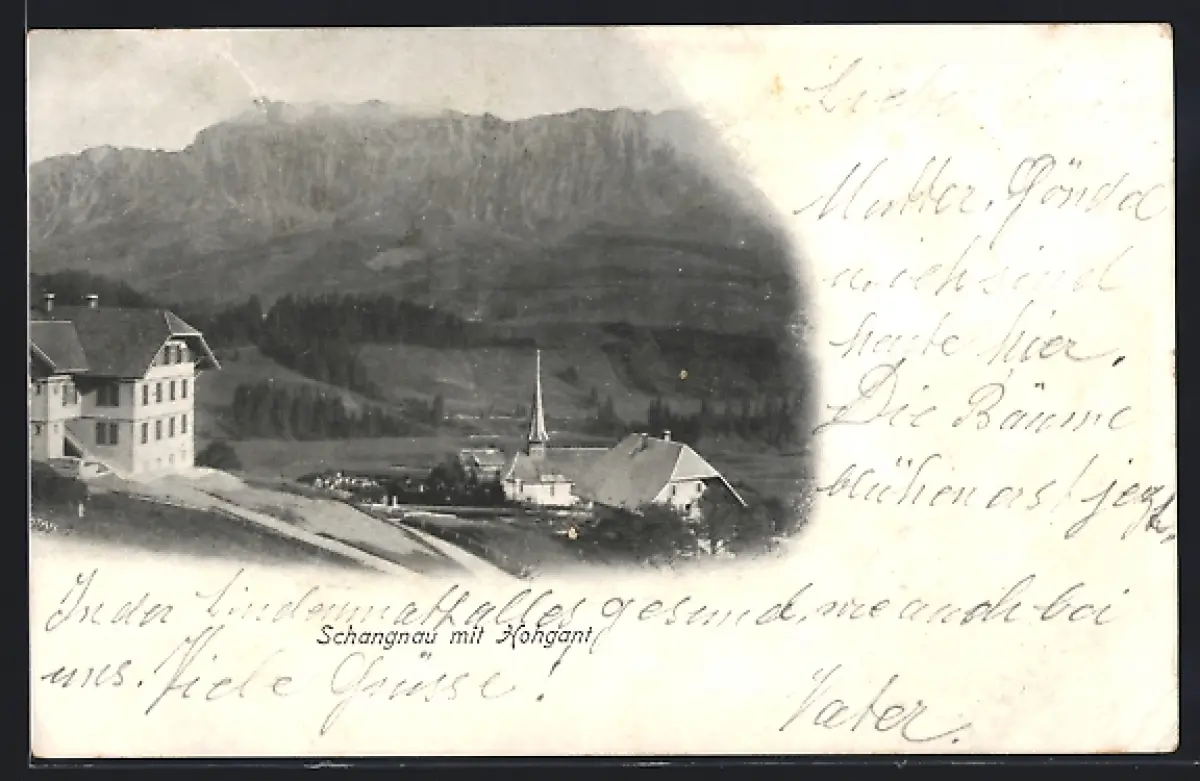 Liebe
Mutter. Göndel
u. ich sind
heute hier.
Die Bäume
blühen erst jezt,
In der Lindenmatt alles gesund, wie auch bei
Schangnau mit Hohgant
uns. Viele Grüsse!
Vater.